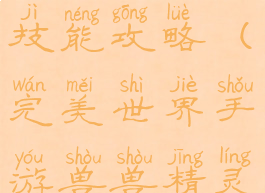 jì néng gōng lüè
技能攻略（
wán měi shì jiè shǒu
完美世界手
yóu shòu shòu jīng líng
游兽兽精灵